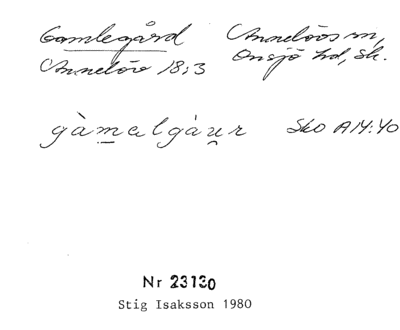 Gamlegård Annelövs sn,
Annelöv 18:3 Onsjö hd, Sk.
gàmalgáu̯r Sko A14:40
Nr 23130
Stig Isaksson 1980